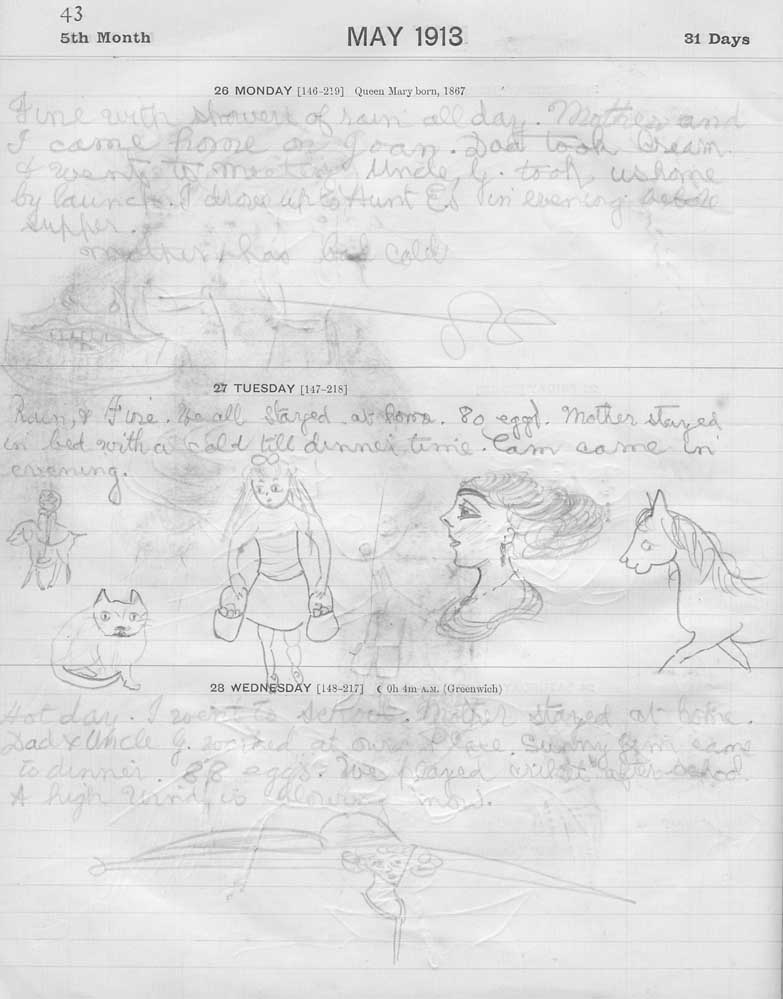 43
5th Month
MAY 1913
31 Days
26 MONDAY [146-219] Queen Mary born, 1867
Fine with showers of rain all day. Mother and
I came home on Joan. Dad took cream
& went to meeting Uncle G. took us home
by launch. I drove up to Aunt E's in evening before
supper.
Mother has bad cold
27 TUESDAY [147-218]
Rain, & Fine. We all stayed at home. 80 eggs. Mother stayed
in bed with a cold till dinner time. Cam came in
evening.
28 WEDNESDAY [148-217] ☾ 0h 4m A.M. (Greenwich)
Hot day. I went to school. Mother stayed at home.
Dad & Uncle G. worked at our place. Sunny Jim came
to dinner. 88 eggs. We played after school.
A high wind is blowing now.